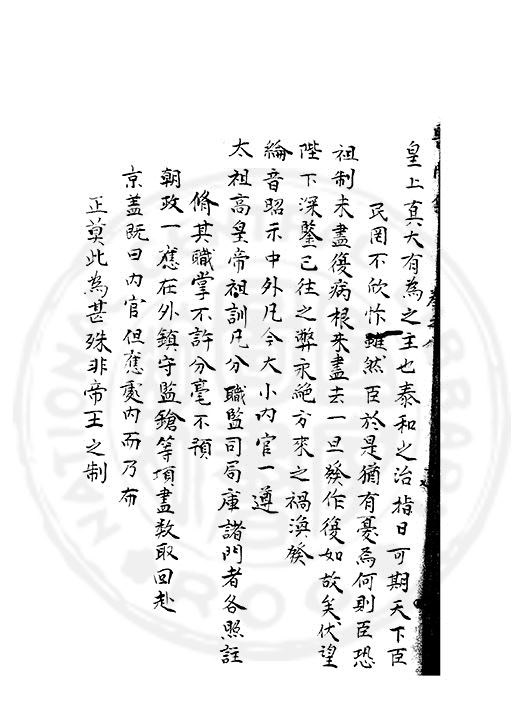 皇上真大有為之主也泰和之治指日可期天下臣
民罔不欣忭雖然臣於是猶有憂焉何則臣恐
祖制未盡復病根未盡去一旦發作復如故矣伏望
陛下深鑒已往之弊永絕方來之禍渙發
綸音昭示中外凡今大小內官一遵
太祖高皇帝祖訓凡分職監司局庫諸門者各照註
脩其職掌不許分毫不預
朝政一應在外鎮守監鎗等項盡数取回赴
京蓋既曰內官但應處內而乃布
正莫此為甚殊非帝王之制